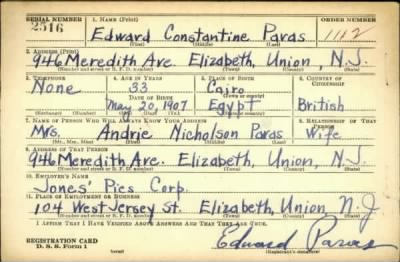 SERIAL NUMBER 1. NAME (Print) ORDER NUMBER
2516 Edward Constantine Paras 1142
(First) (Middle) (Last)
2. ADDRESS (Print)
946 Meredith Ave. Elizabeth, Union, N.J.
(Number and street or R. F. D. number) (Town) (County) (State)
3. TELEPHONE 4. AGE IN YEARS 5. PLACE OF BIRTH 6. COUNTRY OF CITIZENSHIP
None 33 Cairo
DATE OF BIRTH (Town or county)
May 20, 1907 Egypt British
(Mo.) (Day) (Yr.) (State or country)
7. NAME OF PERSON WHO WILL ALWAYS KNOW YOUR ADDRESS 8. RELATIONSHIP OF THAT PERSON
Mrs. Andrie Nicholson Paras Wife
(Mr., Mrs., Miss) (First) (Middle) (Last)
9. ADDRESS OF THAT PERSON
946 Meredith Ave. Elizabeth, Union, N.J.
(Number and street or R. F. D. number) (Town) (County) (State)
10. EMPLOYER'S NAME
Jones' Pies Corp.
11. PLACE OF EMPLOYMENT OR BUSINESS
104 West Jersey St. Elizabeth, Union N.J
(Number and street or R. F. D. number) (Town) (County) (State)
I AFFIRM THAT I HAVE VERIFIED ABOVE ANSWERS AND THAT THEY ARE TRUE.
REGISTRATION CARD Edward Paras
D. S. S. Form 1 (Registrant's signature)